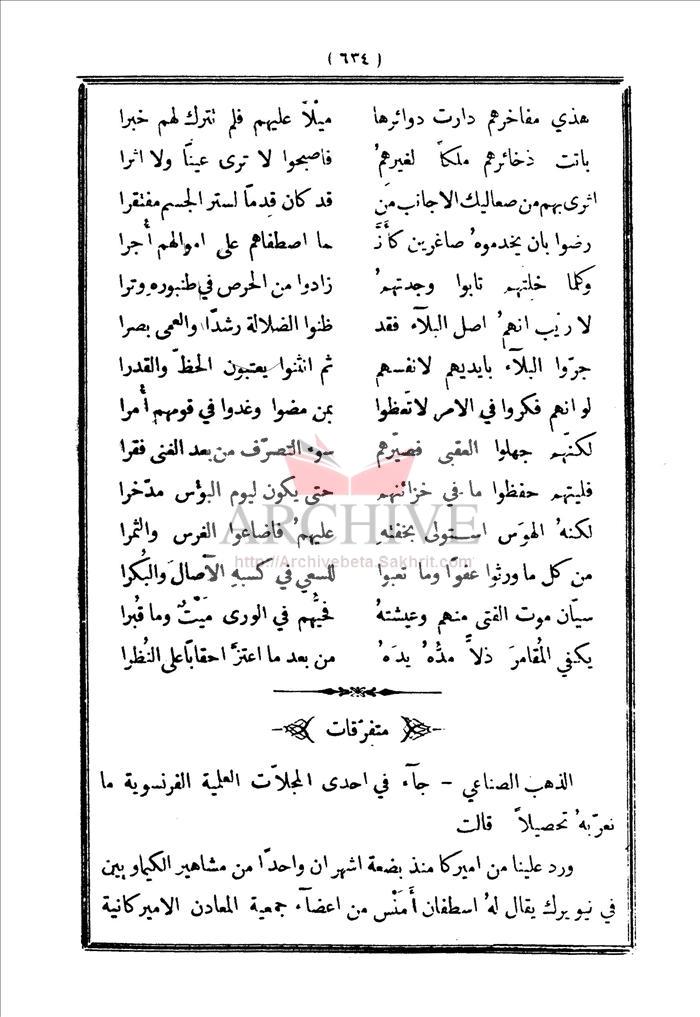 ( ٦٣٤ )
هذي مفاخرهم دارت دوائرها ميْلاً عليهم فلم تترك لهم خبرا
باتت ذخائرهم ملكاً لغيرهمُ فاصبحوا لا ترى عينًا ولا اثرا
اثرى بهم من صعاليك الاجانب مَن قد كان قِدمًا لستر الجسم مفتقرا
رضوا بان يخدموهُ صاغرين كأَنَّ ما اصطفاهم على اموالهم أُجرا
وكلما خلتهم تابوا وجدتهمُ زادوا من الحرص في طنبورهِ وترا
لا ريب انهمُ اصل البلآء فقد ظنوا الضلالة رشدًا والعمى بصرا
جرّوا البلآء بايديهم لانفسهم ثم انثنوا يعتبون الحظّ والقدرا
لو انهم فكروا في الامر لاتعظوا بمن مضوا وغدوا في قومهم أُمرا
لكنّهم جهلوا العقبى فصيّرهم سوء التصرّف من بعد الغنى فقرا
فليتهم حفظوا ما في خزائنهم حتى يكون ليوم البؤس مدّخرا
لكنهُ الهوَس استولى بخفتهِ عليهمُ فاضاعوا الغرس والثمرا
من كل ما ورثوا عفوًا وما تعبوا للسعي في كسبهِ الآصالَ والبُكرا
سيّان موت الفتى منهم وعيشتهُ فحيُّهم في الورى مَيْتٌ وما قُبرا
يكفي المُقامرَ ذلاًّ مدُّهُ يدَهُ من بعد ما اعتزَّ احقابًا على النُظرا
متفرّقات
الذهب الصناعي – جآء في احدى المجلاّت العلمية الفرنسوية ما
نعرّبهُ تحصيلاً قالت
ورد علينا من اميركا منذ بضعة اشهر ان واحدًا من مشاهير الكيماويين
في نيويرك يقال لهُ اسطفان أَمَنْس من اعضآء جمعية المعادن الاميركانية
ARCHIVE
http://Archivebeta.Sakhrit.com